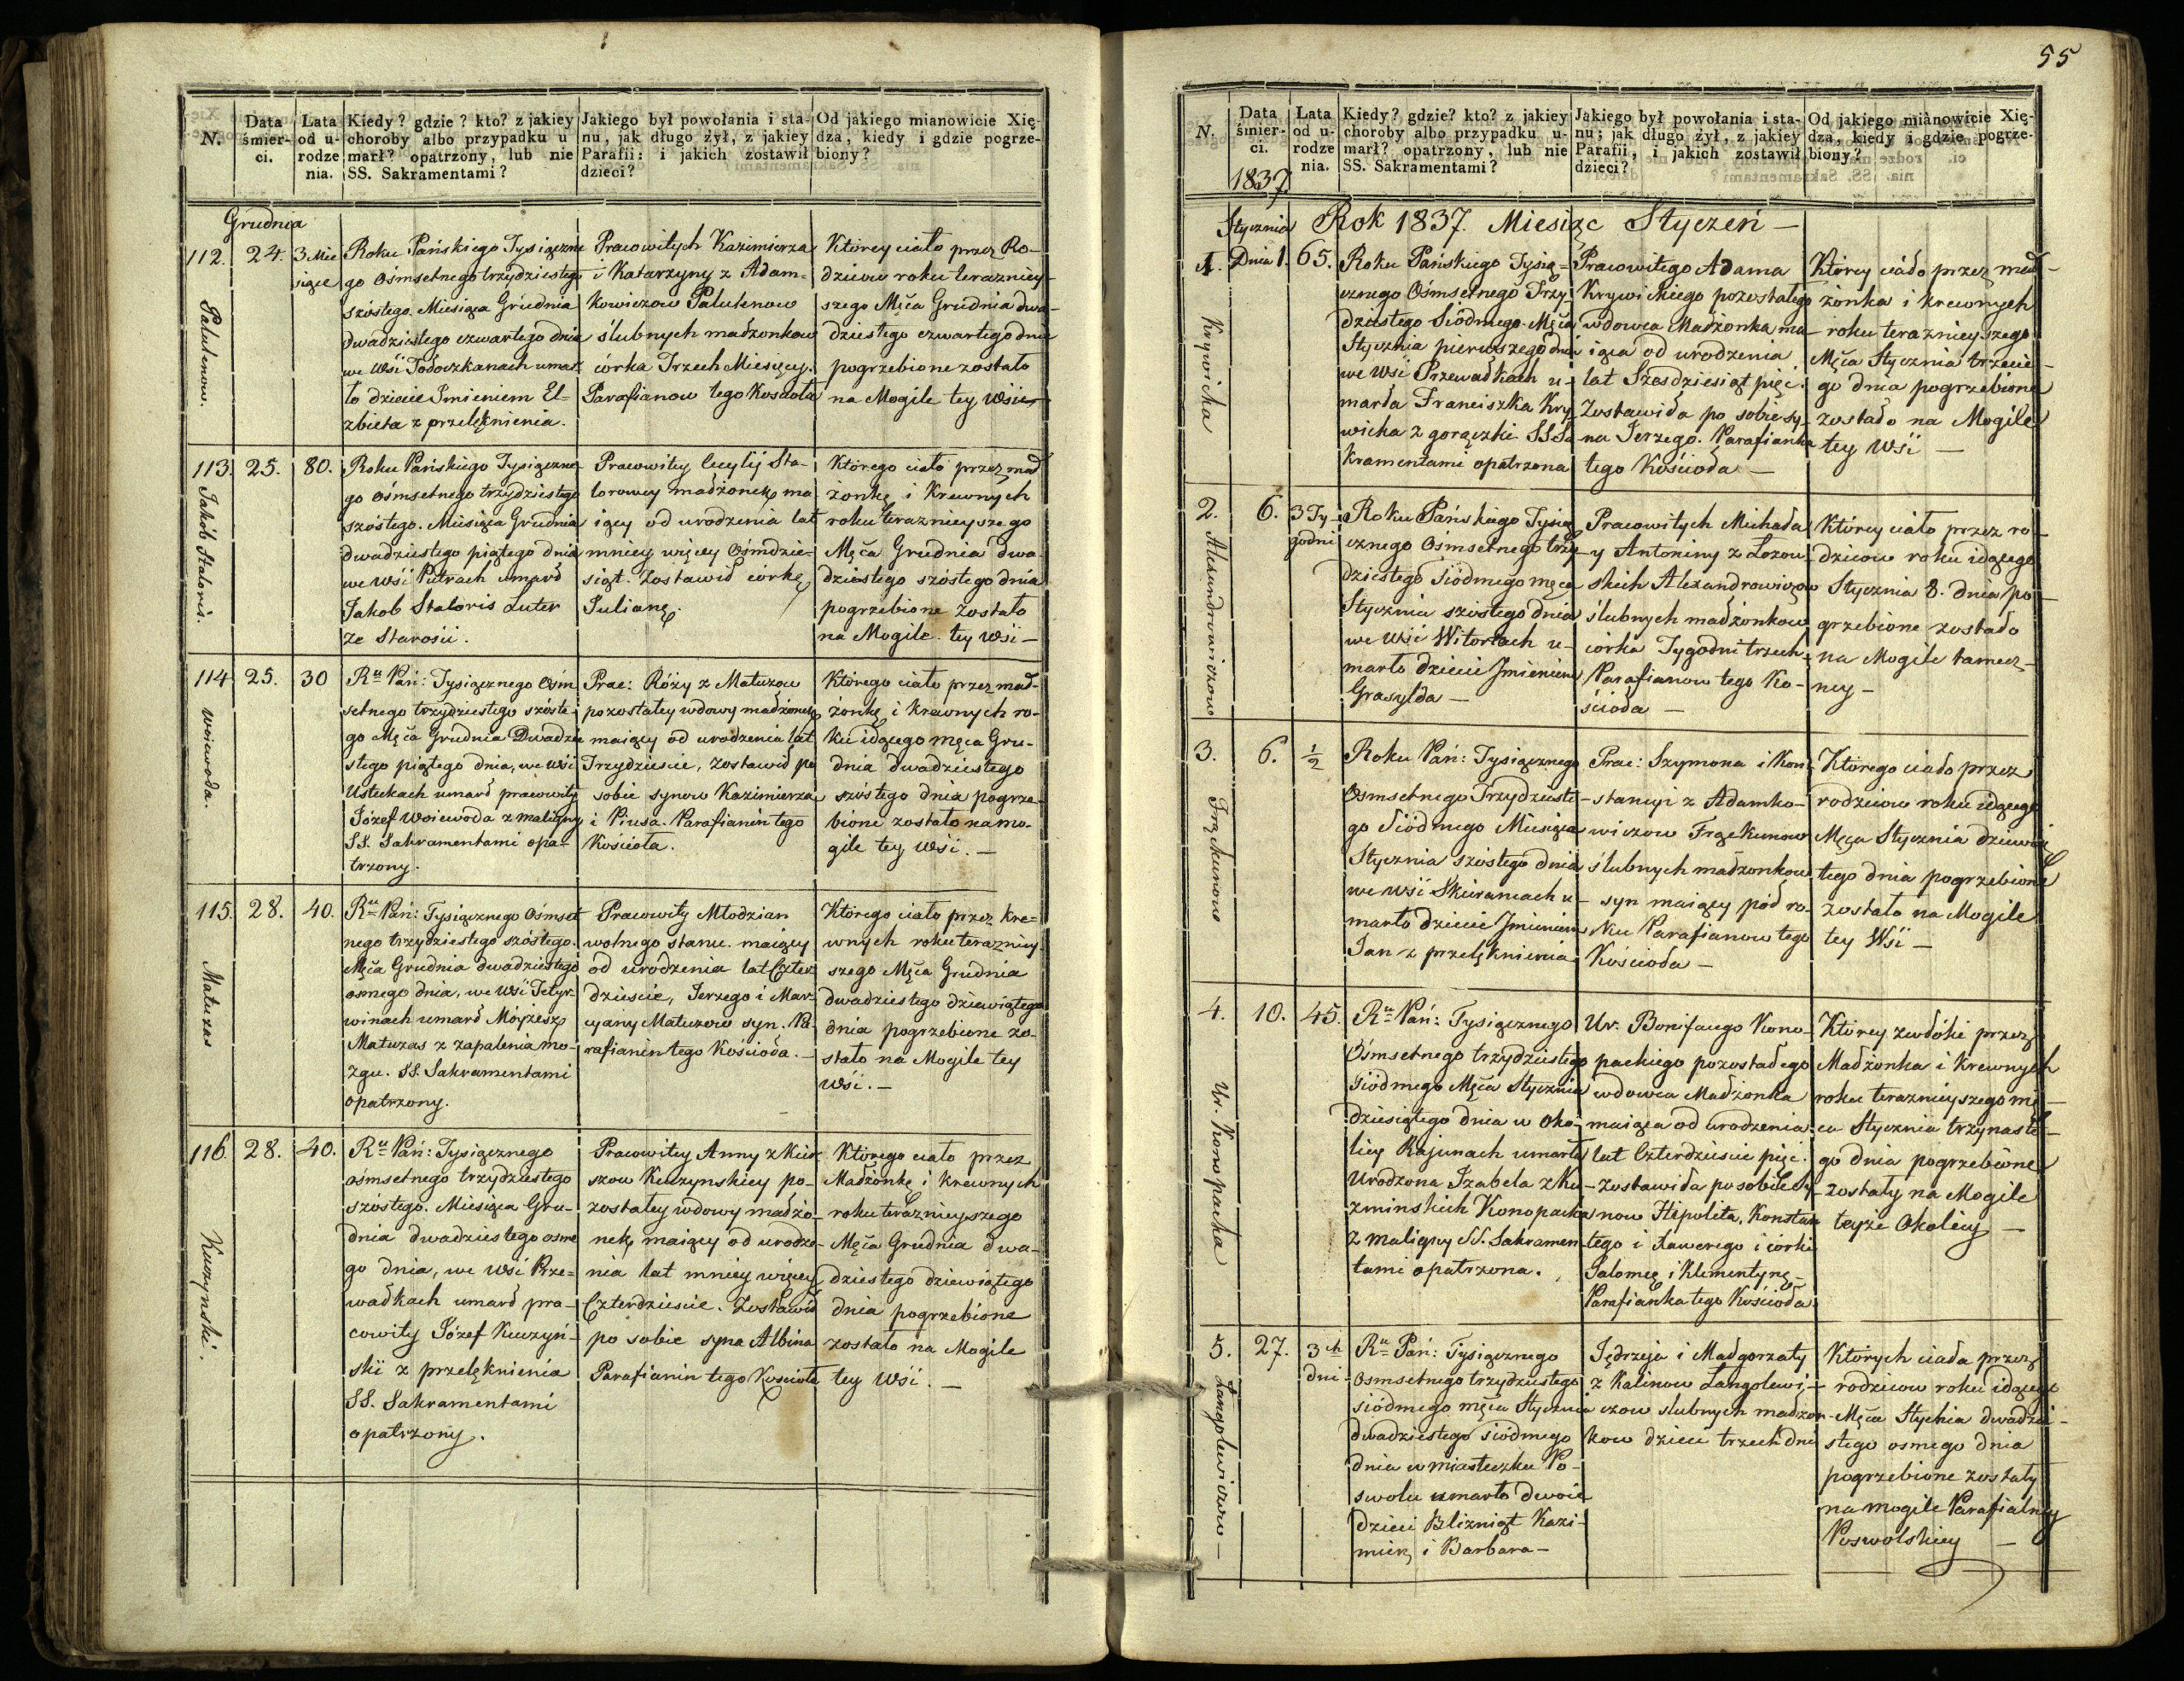 55
N.
Data śmier- ci.
Lata od u- rodze nia.
Kiedy? gdzie? kto? z jakiey
choroby albo przypadku u
marł? opatrzony, lub nie
SS. Sakramentami?
Jakiego był powołania i sta-
nu, jak długo żył, z jakiey
Parafii: i jakich zostawił
dzieci?
Od jakiego mianowicie Xię-
dza, kiedy i gdzie pogrze-
biony?
Grudnia
112. 24. 3 Mie
sięce
Palulenow.
Roku Pańskiego Tysiączne
go Ośmsetnego trzydziestego
szóstego. Miesiąca Grudnia
dwadziestego czwartego dnia
we Wsi Todoczkanach umar
ło dziecie Imieniem El=
zbieta z przelęknienia.
Pracowitych Kazimierza
i Katarzyny z Adam=
kowiczow Palulenow
ślubnych madżonkow
córka Trzech Miesięcy.
Parafianow tego Kościoła
Którey ciało przez Ro-
dzicow roku terazniey-
szego Męca Grudnia dwa-
dziestego czwartego dnia
pogrzebione zostało
na Mogile tey Wsii
113. 25. 80.
Jakób Staloris.
Roku Pańskiego Tysiączne
go ośmsetnego trzydziestego
szóstego. Miesiąca Grudnia
dwadziestego piątego dnia
we wsi Putrach umard
Jakob Staloris Luter
ze Starosii.
Pracowitey Cecylij Sta-
lorowey madżonek ma
iący od urodzenia lat
mniey więcey Ośmdzie-
siąt. Zostawid córkę
Julianę.
Którego ciało przez mad
żonkę i Krewnych
roku teraznieyszego
Męca Grudnia dwa-
dziestego szóstego dnia
pogrzebione zostało
na Mogile. tey Wsi -
114 25. 30
Woiewoda.
Ru Pań: Tysiącznego Ośm
setnego trzydziestego szóste-
go Męca Grudnia Dwadzie
stego piątego dnia, we wsi
Usteckach umard pracowity
Józef Woiewoda z maligny
SS. Sakramentami opa-
trzony.
Prac: Róży z Matuzow
pozostałey wdowy madżonek
maiący od urodzenia lat
Trzydzieście, zostawid po
sobie synow Kazimierza
i Piusa. Parafianin tego
Kościoła.
Którego ciało przez mad-
żonkę i krewnych ro-
ku idącego męca Gru-
dnia dwadziestego
szóstego dnia pogrze-
bione zostało na mo-
gile tey wsi. -
115. 28. 40.
Matuzas
Ru Pań: Tysiącznego Ośmset
nego trzydziestego szóstego.
Męca Grudnia dwadziestego
osmego dnia, we Wsi Tetyr-
winach umard Moyzesz
Matuzas z zapalenia mo-
zgu. SS. Sakramentami
opatrzony.
Pracowity Młodzian
wolnego stanu. maiący
od urodzenia lat Czter
dzieście, Jerzego i Mar-
cyany Matuzow syn. Pa-
rafianin tego Kościoda. -
Którego ciało przez kre=
wnych roku terazniey
szego Męca Grudnia
dwadziestego dziewiątego
dnia pogrzebione zo-
stało na Mogile tey
Wsi. -
116. 28. 40.
Kuczynski.
Ru Pań: Tysiącznego
ośmsetnego trzydziestego
szóstego. Miesiąca Gru-
dnia dwadziestego osme
go dnia, we Wsi Prze=
wadkach umard pra-
cowity Józef Kuczyń-
ski z przelęknienia
SS. Sakramentami
opatrzony.
Pracowitey Anny z Kier
szow Kuczynskiey po-
zostałey wdowy madżo-
nek maiący od urodze-
nia lat mniey więcey
Czterdzieście. Zostawid
po sobie syna Albina
Parafianin tego Kościoła
Którego ciało przez
Madżonkę i krewnych
roku teraznieyszego
Męca Grudnia dwa-
dziestego dziewiątego
dnia pogrzebione
zostało na Mogile
tey Wsi. -
N.
Data śmier- ci.
1837
Lata od u- rodze nia.
Kiedy? gdzie? kto? z jakiey
choroby albo przypadku u-
marł? opatrzony, lub nie
SS. Sakramentami?
Jakiego był powołania i sta-
nu; jak długo żył, z jakiey
Parafii, i jakich zostawił
dzieci?
Od jakiego mianowicie Xię-
dza, kiedy i gdzie pogrze-
biony?
Stycznia Rok 1837. Miesiąc Styczeń -
1. Dnia 1. 65.
Krywicka
Roku Pańskiego Tysią=
cznego Ośmsetnego Trzy
dziestego Siódmego. Męca
Stycznia pierwszego dnia
we Wsi Przewadkach u-
marda Franciszka Kry
wicka z gorączki SS Sa
kramentami opatrzona
Pracowitego Adama
Krywickiego pozostałego
wdowca Madżonka ma
iąca od urodzenia
lat Szesdziesiąt pięć.
Zostawida po sobie sy-
na Jerzego. Parafianka
tego Kościoda -
Którey ciado przez mad-
żonka i krewnych
roku teraznieyszego
Męca Stycznia trzecie-
go dnia pogrzebione
zostado na Mogile
tey Wsi -
2. 6. 3 Ty-
godni
Alexandrowiczow
Roku Pańskiego Tysią
cznego Ośmsetnego trzy-
dziestego Siódmego męca
Stycznia szóstego dnia
we Wsi Witortach u-
marło dziecie Imieniem
Grasylda -
Pracowitych Michada
y Antoniny z Lozow
skich Alexandrowiczow
ślubnych madżonkow
córka Tygodni trzech.
Parafianow tego Ko-
ścioda -
Którey ciało przez ro-
dzicow roku idącego
Stycznia 8. dnia po-
grzebione zostado
na Mogile tamecz-
ney -
3. 6. 1/2
Frąckunow
Roku Pań: Tysiącznego
Osmsetnego Trzydzieste-
go Siódmego Miesiąca
Stycznia szóstego dnia
we wsi Skieraniach u-
marło dziecie Imieniem
Jan z przelęknienia
Prac: Szymona i Kon-
stancyi z Adamko-
wiczow Frąckunow
ślubnych madżonkow
syn maiący pód ro-
ku Parafianow tego
Kościoda -
Którego ciado przez
rodzicow roku idącego
Męca Stycznia dziewią
tego dnia pogrzebione
zostało na Mogile
tey Wsi -
4. 10. 45.
Ur. Konopacka
Ru Pań: Tysiącznego
Ośmsetnego trzydziestego
Siódmego Męca Stycznia
dziesiątego dnia w Oko-
licy Rajunach umarła
Urodzona Izabela z Ku-
zminskich Konopacka
z maligny SS. Sakramen-
tami opatrzona.
Ur. Bonifacego Kono-
packiego pozostadego
wdowca Madżonka
maiąca od urodzenia
lat Czterdzieście pięć.
zostawida po sobie sy-
now Hipolita, Konstan
tego i Xawerego i córki
Salomeę i Klementynę -
Parafianka tego Kościoda
Którey zwdoki przez
Madżonka i krewnych
roku teraznieyszego mę-
ca Stycznia trzynaste-
go dnia pogrzebione
zostały na Mogile
teyże Okolicy -
5. 27. 3ch
dni
Langolewiczow -
Ru Pań: Tysiącznego
Osmsetnego trzydziestego
siódmego męca Stycznia
dwadziestego siódmego
dnia w miasteczku Po-
swolu umarło dwoie
dzieci Blizniąt Kazi-
mierz i Barbara -
Jędrzeja i Madgorzaty
z Kalinow Langolewi-
czow slubnych madżon-
kow dzieci trzech dni
Których ciada przez
rodzicow roku idącego
Męca Stycnia dwadzie-
stego osmego dnia
pogrzebione zostały
na mogile Parafialney
Poswolskiey -